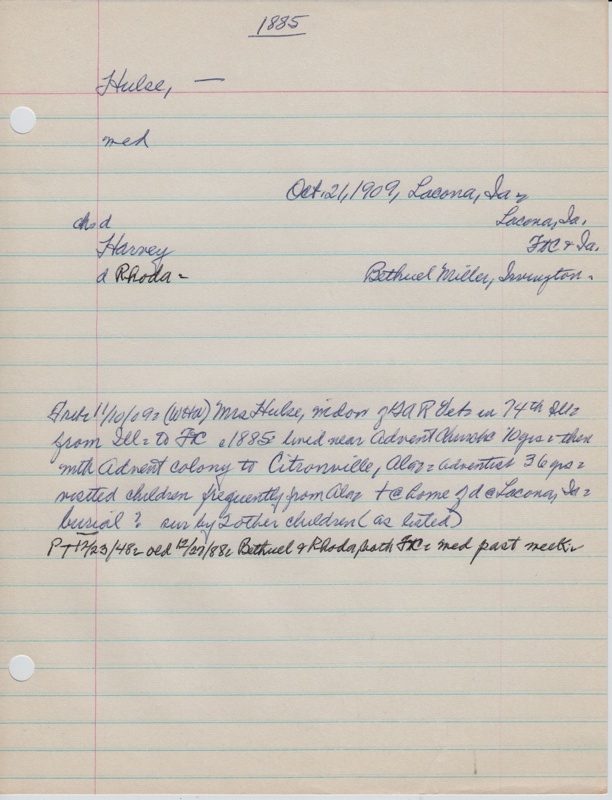 1885
Hulse, —
med
Oct. 21, 1909, Lacona, Ia =
d Lacona, Ia.
Harvey FtC & Ia.
d Rhoda = Bethuel Miller, Irvington =
11/10/09 = (WHd) Mrs Hulse, widow of GAR Vets in 74th Ill =
from Ill = to FtC c1885 = lived near Advent Church 10 yrs = then
with Advent colony to Citronville, Ala = adventist 36 yrs =
visited children frequently from Ala = home of d Lacona, Ia =
burial? sur by 2 other children (as listed)
12/23/48 = 12/27/88 = Bethuel & Rhoda, both FtC = med past week =